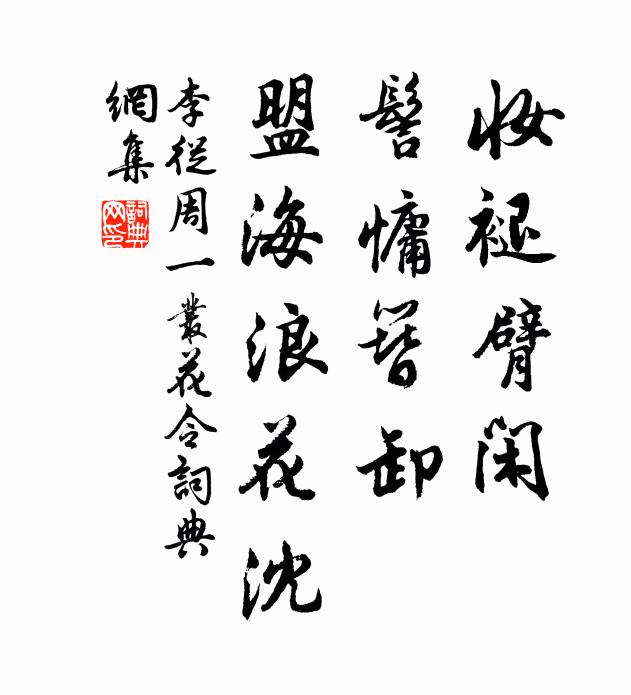 妝褪臂閑
髻慵簪卸
盟海浪花沈
李從周一叢花令詞典
網集
詞典網印